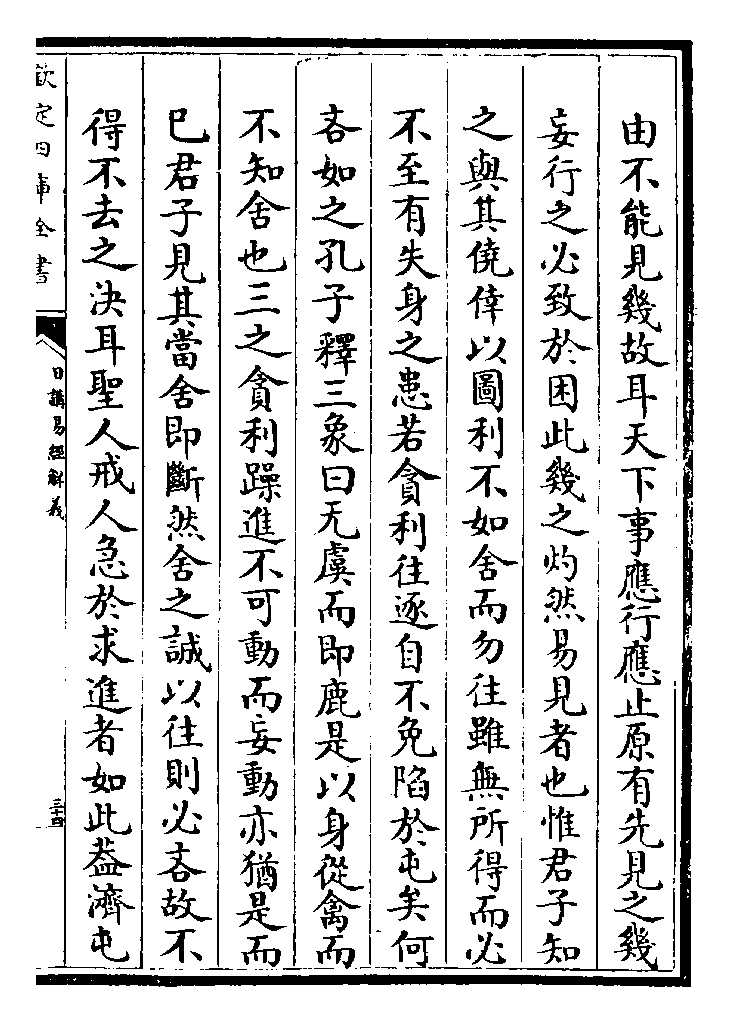 由不能見幾故耳天下事應行應止原有先見之幾
妄行之必致於困此幾之灼然易見者也惟君子知
之與其僥倖以圖利不如舍而勿往雖無所得而必
不至有失身之患若貪利往逐自不免陷於屯矣何
吝如之孔子釋三象曰无虞而即鹿是以身從禽而
不知舍也三之貪利躁進不可動而妄動亦猶是而
巳君子見其當舍即斷然舍之誠以往則必吝故不
得不去之決耳聖人戒人急於求進者如此葢濟屯
欽定四庫全書
日講易經解義
三十四